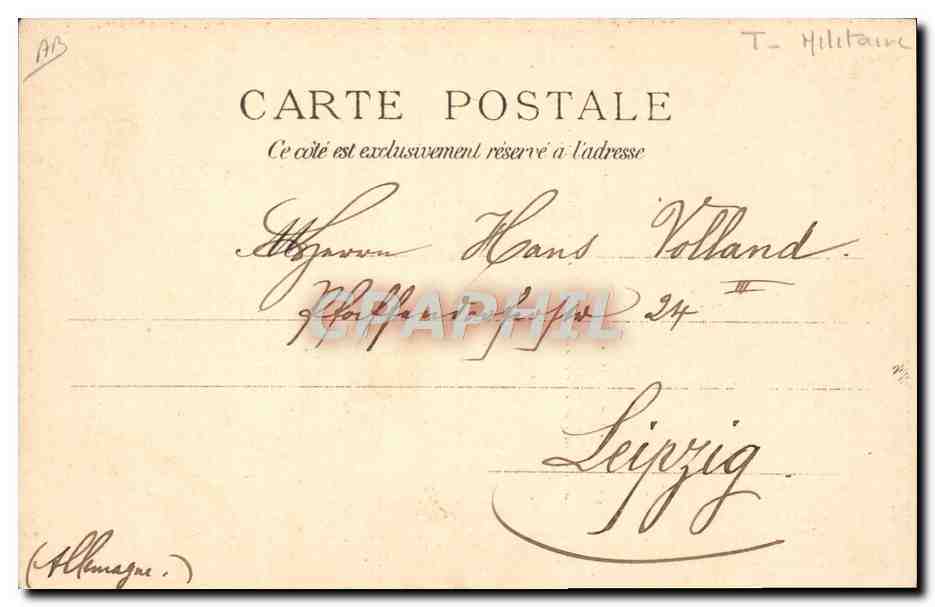 AB
T- Militaire
CARTE POSTALE
Ce côté est exclusivement réservé à l'adresse
Herrn Hans Volland.
Pfaffendorferstr 24 III
CPAPHIL
Leipzig.
(Allemagne.)